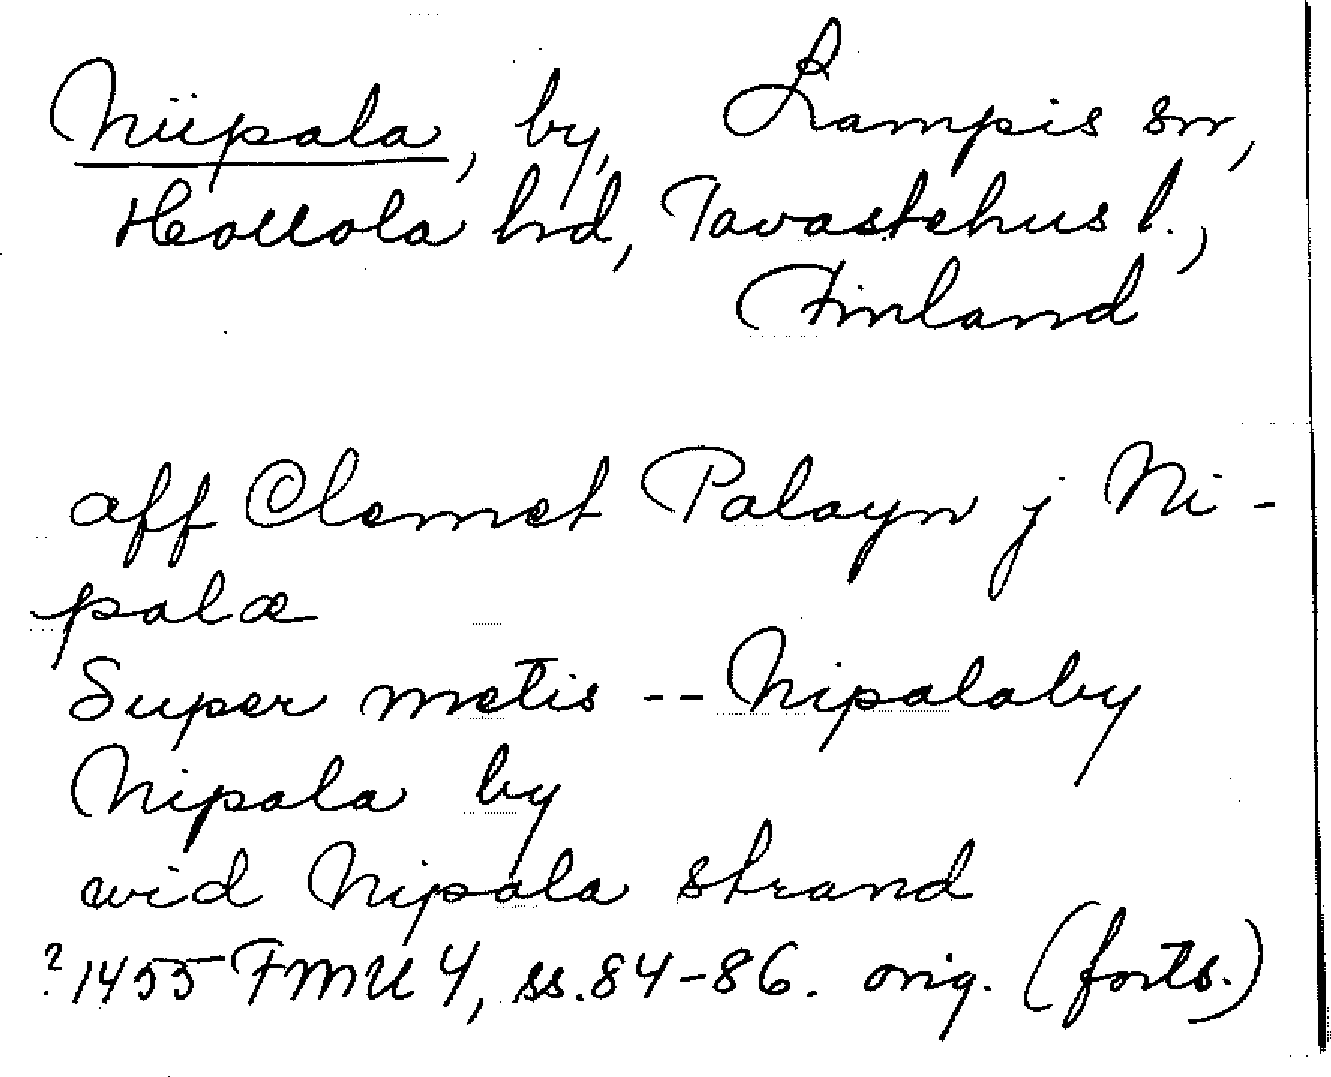 Niipala, by, Lampis sn,
Hollola hrd, Tavastehus l.,
Finland
aff Clemet Palayn j Ni-
palæ
Super metis -- Nipalaby
Nipala by
wid Nipala strand
? 1455 FMU 4, ss. 84-86. orig. (forts.)